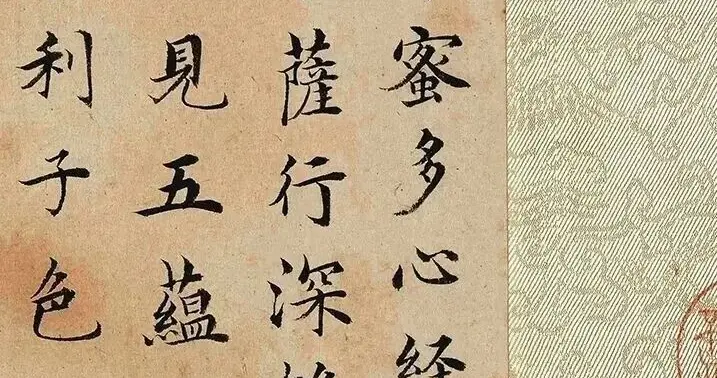 蜜多心経
薩行深
見五蘊
利子色